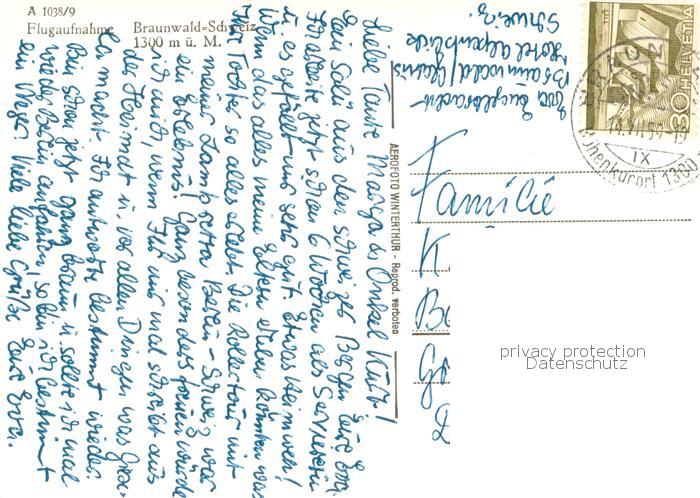 A 1038/9
Flugaufnahme Braunwald-Schweiz
1300 m ü. M.
Liebe Tante Marga & Onkel Kurt!
Ein Salü aus den Schweizer Bergen Eure Eva.
Ich arbeite jetzt schon 6 Wochen als Serviererin
u. es gefällt uns sehr gut. Etwas Heimweh!
Wenn das alles meine Eltern sehen könnten was
ihre Tochter so alles erlebt. Die Rollertour mit
meiner Lambretta Berlin - Schweiz war
ein Erlebnis! Ganz besonders freuen würde
ich mich, wenn Ihr mir mal schreibt aus
der Heimat u. vor allen Dingen was
macht. Ich antworte bestimmt wieder.
Bin schon jetzt ganz braun u. sollte ich mal
wieder Berlin aufsuchen, so bin ich bestimmt
ein Neger! Viele liebe Grüße Eure Eva.
AEROFOTO WINTERTHUR - Reprod. verboten
Eva
Braunwald/Glarus
Hotel Alpenblick
Schweiz.
Familie
K
B
G
D
HELVETIA
30
BRAUN
IX
Höhenkurort 1300
privacy protection
Datenschutz